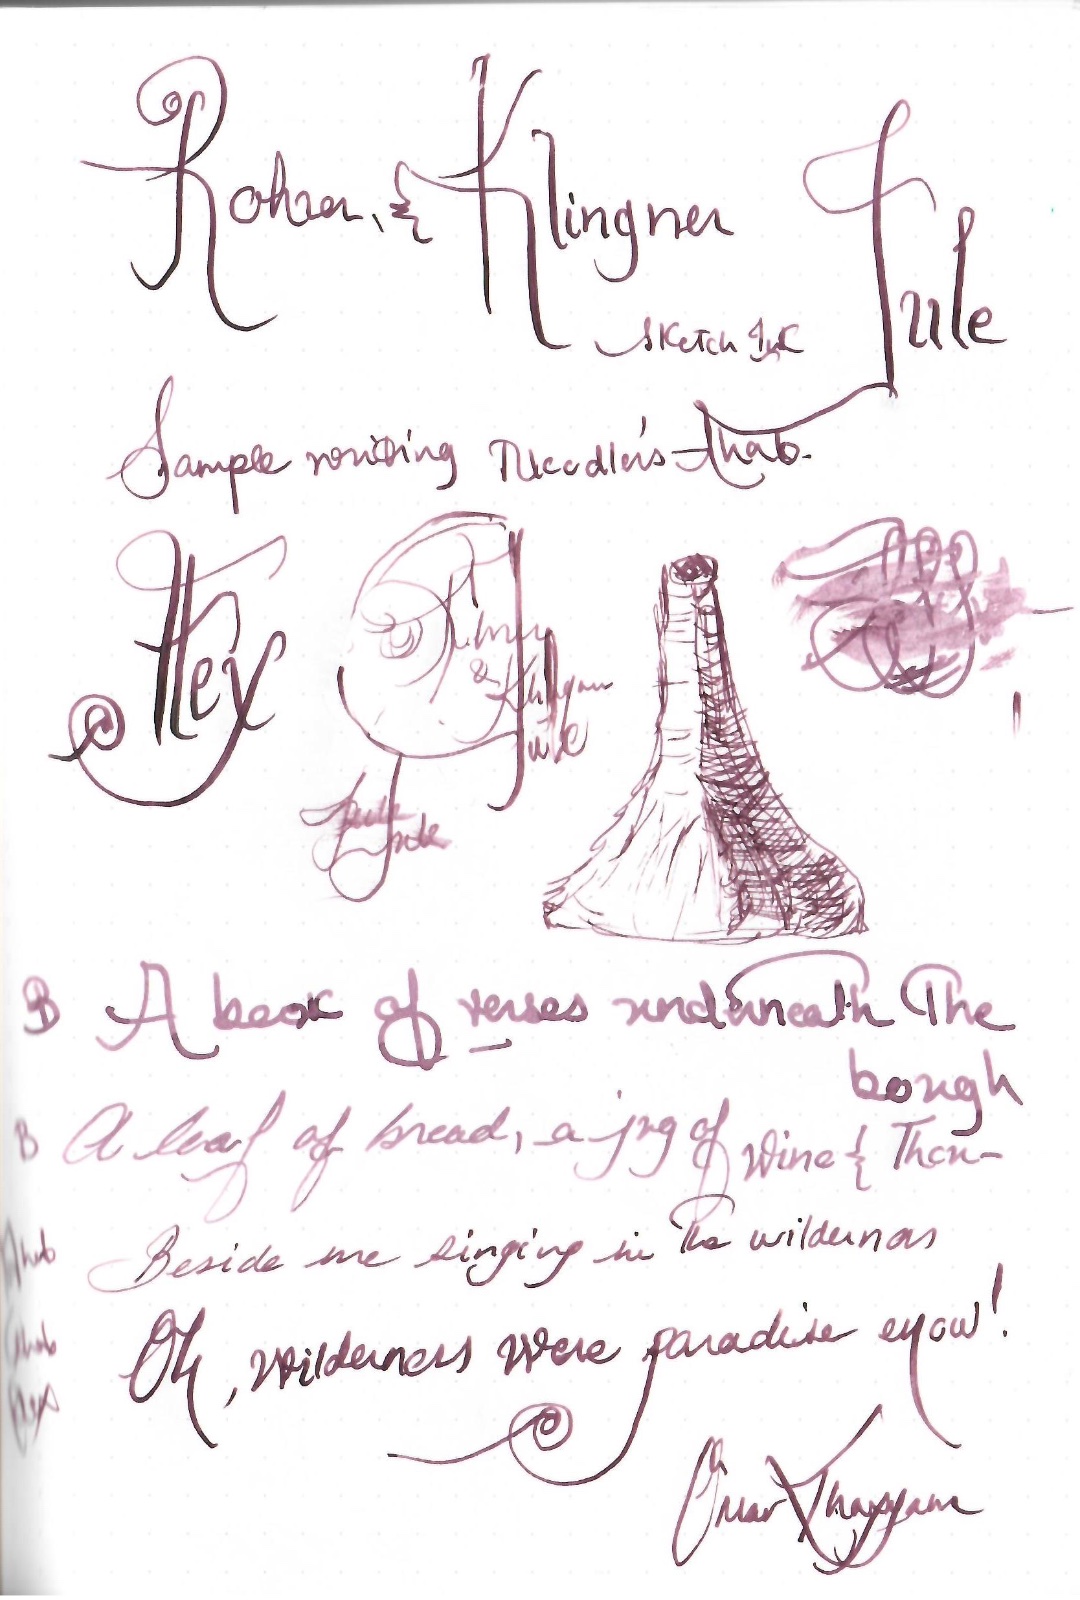 Rohrer & Klingner Jule
Sketch Ink
Sample writing Noodler's Ahab.
Hey
Rohrer
& Klingner
Jule
Jule
Jule
B A book of verses underneath The
bough
B A loaf of bread, a jug of wine & Thou-
Ahab Beside me singing in The wilderness
Ahab Oh, wilderness were paradise enow!
flex
Omar Khayyam